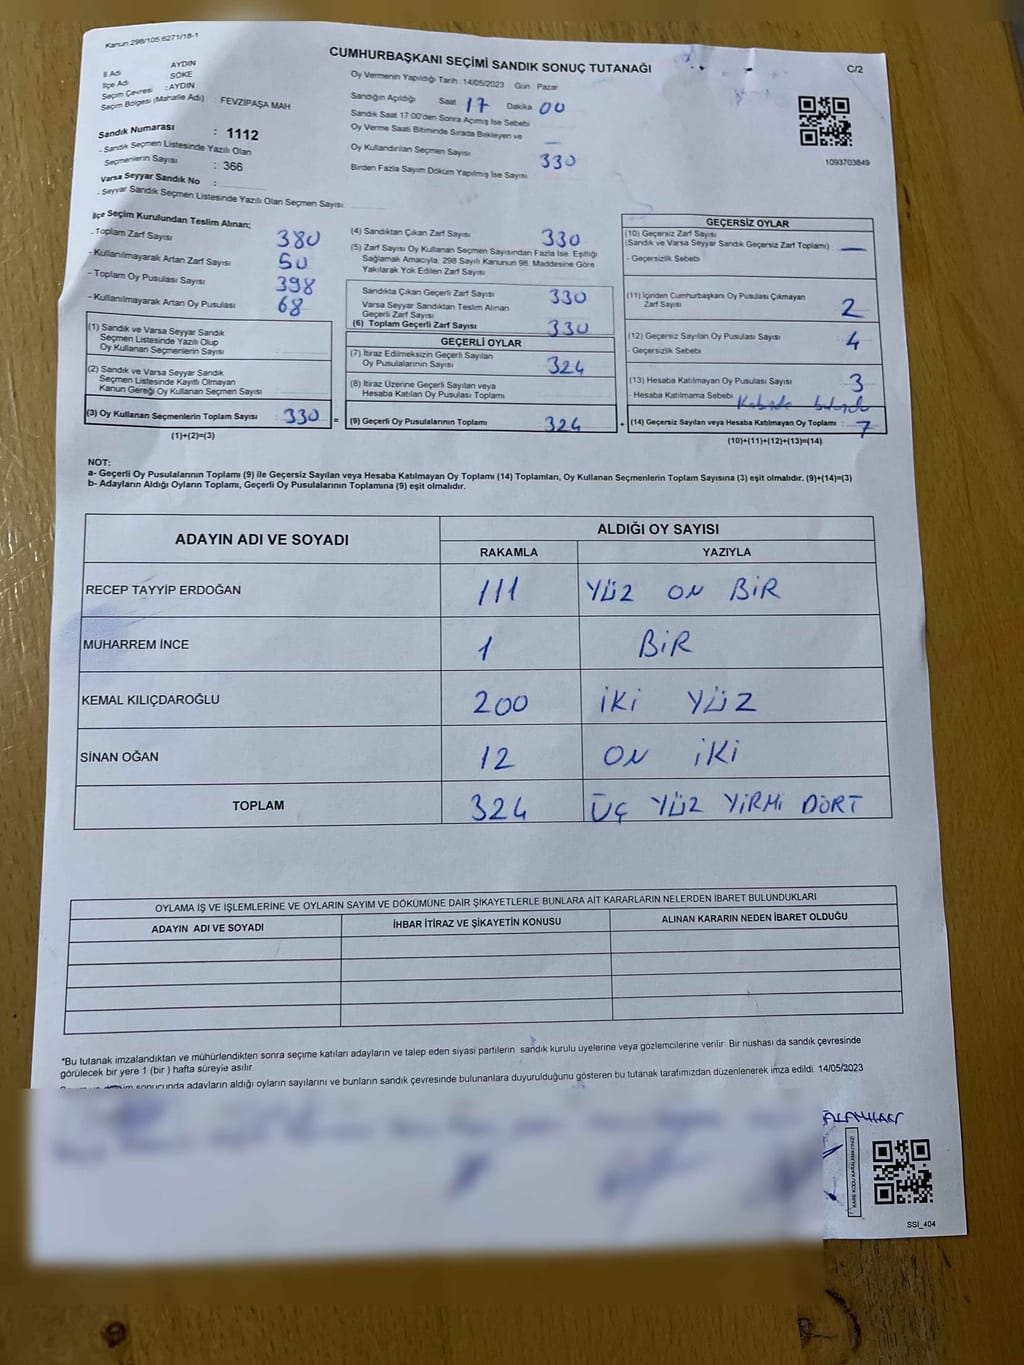 Kanun:298/105,6271/18-1
CUMHURBAŞKANI SEÇİMİ SANDIK SONUÇ TUTANAĞI
C/2
İl Adı AYDIN
İlçe Adı SÖKE
Seçim Çevresi : AYDIN
Seçim Bölgesi (Mahalle Adı) : FEVZİPAŞA MAH
Oy Vermenin Yapıldığı Tarih :14/05/2023 Gün : Pazar
Sandığın Açıldığı Saat 17 Dakika 00
Sandık Saat 17:00'den Sonra Açımış İse Sebebi
Oy Verme Saati Bitiminde Sırada Bekleyen ve
Oy Kullandırılan Seçmen Sayısı 330
Birden Fazla Sayım Döküm Yapılmış İse Sayısı
1093703849
Sandık Numarası : 1112
- Sandık Seçmen Listesinde Yazılı Olan
Seçmenlerin Sayısı : 366
Varsa Seyyar Sandık No :
- Seyyar Sandık Seçmen Listesinde Yazılı Olan Seçmen Sayısı:
İlçe Seçim Kurulundan Teslim Alınan;
- Toplam Zarf Sayısı 380
- Kullanılmayarak Artan Zarf Sayısı 50
- Toplam Oy Pusulası Sayısı 398
- Kullanılmayarak Artan Oy Pusulası 68
(1) Sandık ve Varsa Seyyar Sandık
Seçmen Listesinde Yazılı Olup
Oy Kullanan Seçmenlerin Sayısı
(2) Sandık ve Varsa Seyyar Sandık
Seçmen Listesinde Kayıtlı Olmayan
Kanun Gereği Oy Kullanan Seçmen Sayısı
(3) Oy Kullanan Seçmenlerin Toplam Sayısı 330 =
(1)+(2)=(3)
(4) Sandıktan Çıkan Zarf Sayısı 330
(5) Zarf Sayısı Oy Kullanan Seçmen Sayısından Fazla İse, Eşitliği
Sağlamak Amacıyla, 298 Sayılı Kanunun 98. Maddesine Göre
Yakılarak Yok Edilen Zarf Sayısı
Sandıkta Çıkan Geçerli Zarf Sayısı 330
Varsa Seyyar Sandıktan Teslim Alınan
Geçerli Zarf Sayısı
(6) Toplam Geçerli Zarf Sayısı 330
GEÇERLİ OYLAR
(7) İtiraz Edilmeksizin Geçerli Sayılan
Oy Pusulalarının Sayısı 324
(8) İtiraz Üzerine Geçerli Sayılan veya
Hesaba Katılan Oy Pusulası Toplamı
(9) Geçerli Oy Pusulalarının Toplamı 324 +
GEÇERSİZ OYLAR
(10) Geçersiz Zarf Sayısı
(Sandık ve Varsa Seyyar Sandık Geçersiz Zarf Toplamı) —
- Geçersizlik Sebebi
(11) İçinden Cumhurbaşkanı Oy Pusulası Çıkmayan
Zarf Sayısı 2
(12) Geçersiz Sayılan Oy Pusulası Sayısı 4
- Geçersizlik Sebebi
(13) Hesaba Katılmayan Oy Pusulası Sayısı 3
- Hesaba Katılmama Sebebi
(14) Geçersiz Sayılan veya Hesaba Katılmayan Oy Toplamı : 7
(10)+(11)+(12)+(13)=(14)
NOT:
a- Geçerli Oy Pusulalarının Toplamı (9) ile Geçersiz Sayılan veya Hesaba Katılmayan Oy Toplamı (14) Toplamları, Oy Kullanan Seçmenlerin Toplam Sayısına (3) eşit olmalıdır. (9)+(14)=(3)
b- Adayların Aldığı Oyların Toplamı, Geçerli Oy Pusulalarının Toplamına (9) eşit olmalıdır.
ADAYIN ADI VE SOYADI ALDIĞI OY SAYISI
RAKAMLA YAZIYLA
RECEP TAYYİP ERDOĞAN 111 YÜZ ON BİR
MUHARREM İNCE 1 BİR
KEMAL KILIÇDAROĞLU 200 İKİ YÜZ
SİNAN OĞAN 12 ON İKİ
TOPLAM 324 ÜÇ YÜZ YİRMİ DÖRT
OYLAMA İŞ VE İŞLEMLERİNE VE OYLARIN SAYIM VE DÖKÜMÜNE DAİR ŞİKAYETLERLE BUNLARA AİT KARARLARIN NELERDEN İBARET BULUNDUKLARI
ADAYIN ADI VE SOYADI İHBAR İTİRAZ VE ŞİKAYETİN KONUSU ALINAN KARARIN NEDEN İBARET OLDUĞU
*Bu tutanak imzalandıktan ve mühürlendikten sonra seçime katılan adayların ve talep eden siyasi partilerin sandık kurulu üyelerine veya gözlemcilerine verilir. Bir nushası da sandık çevresinde
görülecek bir yere 1 (bir ) hafta süreyle asılır.
sonucunda adayların aldığı oyların sayılarını ve bunların sandık çevresinde bulunanlara duyurulduğunu gösteren bu tutanak tarafımızdan düzenlenerek imza edildi. 14/05/2023
SSI_404